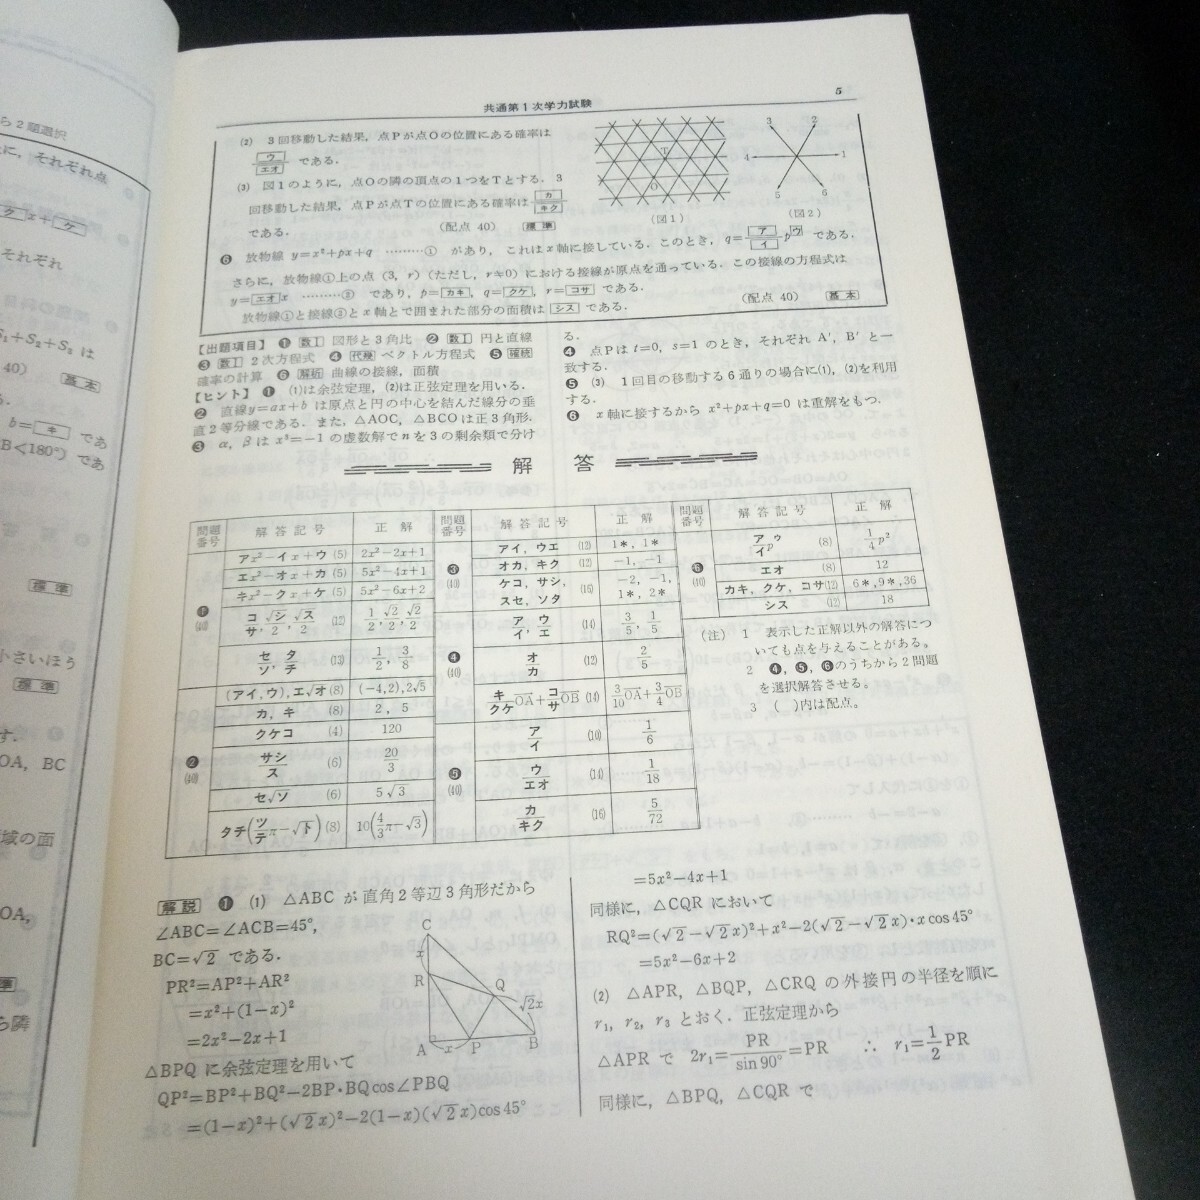 共通第1次学力試験
5
(2) 3回移動した結果，点Pが点Oの位置にある確率は
ウ/エオ である．
(3) 図1のように，点Oの隣の頂点の1つをTとする．3
回移動した結果，点Pが点Tの位置にある確率は カ/キク
である． (配点 40) 標準
T
O
(図1)
3 2
4 1
5 6
(図2)
❻ 放物線 y=x²+px+q ………① があり，これはx軸に接している．このとき，q=ア/イ p^ウ である．
さらに，放物線①上の点(3, r)(ただし，r≠0)における接線が原点を通っている．この接線の方程式は
y=エオx ………② であり，p=カキ，q=クケ，r=コサ である．
放物線①と接線②とx軸とで囲まれた部分の面積は シス である． (配点 40) 基本
【出題項目】 ❶ 数Ⅰ 図形と3角比 ❷ 数Ⅰ 円と直線
❸ 数Ⅰ 2次方程式 ❹ 代幾 ベクトル方程式 ❺ 確統
確率の計算 ❻ 解析 曲線の接線，面積
【ヒント】 ❶ (1)は余弦定理，(2)は正弦定理を用いる．
❷ 直線y=ax+b は原点と円の中心を結んだ線分の垂
直2等分線である．また，△AOC，△BCOは正3角形．
❸ α，βは x³=−1 の虚数解でnを3の剰余類で分け
る．
❹ 点Pは t=0，s=1 のとき，それぞれ A′，B′ と一
致する．
❺ (3) 1回目の移動する6通りの場合に(1)，(2)を利用
する．
❻ x軸に接するから x²+px+q=0 は重解をもつ．
解 答
問題番号 解答記号 正解
❶(40) アx²−イx+ウ (5) 2x²−2x+1
エx²−オx+カ (5) 5x²−4x+1
キx²−クx+ケ (5) 5x²−6x+2
コ/サ, √シ/2, √ス/2 (12) 1/2, √2/2, √2/2
セ/ソ, タ/チ (13) 1/2, 3/8
❷(40) (アイ, ウ), エ√オ (8) (−4, 2), 2√5
カ，キ (8) 2，5
クケコ (4) 120
サシ/ス (6) 20/3
セ√ソ (6) 5√3
タチ(ツ/テ π−√ト) (8) 10(4/3 π−√3)
問題番号 解答記号 正解
❸(40) アイ，ウエ (12) 1＊，1＊
オカ，キク (12) −1，−1
ケコ，サシ，スセ，ソタ (16) −2，−1，1＊，2＊
❹(40) ア/イ, ウ/エ (14) 3/5, 1/5
オ/カ (12) 2/5
キ/クケ OA+コ/サ OB (14) 3/10 OA+3/4 OB
❺(40) ア/イ (10) 1/6
ウ/エオ (14) 1/18
カ/キク (16) 5/72
問題番号 解答記号 正解
❻(40) ア/イ p^ウ (8) 1/4 p²
エオ (8) 12
カキ，クケ，コサ (12) 6＊, 9＊, 36
シス (12) 18
(注) 1 表示した正解以外の解答につ
いても点を与えることがある。
2 ❹，❺，❻のうちから2問題
を選択解答させる。
3 ( )内は配点。
解説 ❶ (1) △ABC が直角2等辺3角形だから
∠ABC=∠ACB=45°，
BC=√2 である．
PR²=AP²+AR²
=x²+(1−x)²
=2x²−2x+1
C
x
R
Q
√2x
A x P B
△BPQ に余弦定理を用いて
QP²=BP²+BQ²−2BP·BQcos∠PBQ
=(1−x)²+(√2x)²−2(1−x)(√2x)cos45°
=5x²−4x+1
同様に，△CQR において
RQ²=(√2−√2x)²+x²−2(√2−√2x)·xcos45°
=5x²−6x+2
(2) △APR，△BQP，△CRQ の外接円の半径を順に
r₁，r₂，r₃ とおく．正弦定理から
△APR で 2r₁=PR/sin90°=PR ∴ r₁=1/2 PR
同様に，△BPQ，△CQR で
ら2題選択
に，それぞれ点
ク x+ケ
それぞれ
S₁+S₂+S₃ は
40) 基本
b=キ であ
B<180°) であ
標準
小さいほう
標準
す．
OA，BC
域の面
OA，
準
ら隣